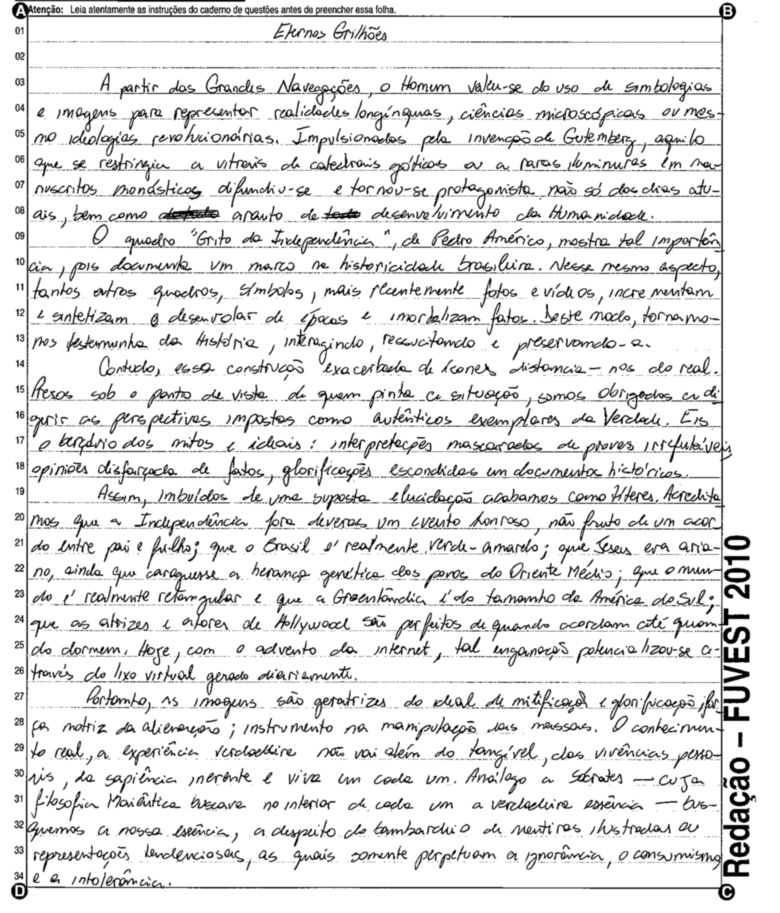 Atenção: Leia atentamente as instruções do caderno de questões antes de preencher essa folha.
A
B
01 Eternos Grilhões
02
03 A partir das Grandes Navegações, o Homem valeu-se do uso de simbologias
04 e imagens para representar realidades longínquas, ciências microscópicas ou mes-
05 mo ideologias revolucionárias. Impulsionados pela invenção de Gutemberg, aquilo
06 que se restringia a vitrais de catedrais góticas ou a raras iluminuras em ma-
07 nuscritos monásticos difundiu-se e tornou-se protagonista não só dos dias atu-
08 ais, bem como arauto de desenvolvimento da Humanidade.
09 O quadro "Grito da Independência", de Pedro Américo, mostra tal importân
10 cia, pois documenta um marco na historicidade brasileira. Nesse mesmo aspecto,
11 tantos outros quadros, símbolos, mais recentemente fotos e vídeos, incrementam
12 e sintetizam o desenrolar de épocas e imortalizam fatos. Deste modo, tornamo-
13 nos testemunha da História, interagindo, ressucitando e preservando-a.
14 Contudo, essa construção exacerbada de ícones distancia-nos do real.
15 Presos sob o ponto de vista de quem pinta a situação, somos obrigados a di
16 gerir as perspectivas impostas como autênticos exemplares da Verdade. Eis
17 o berçário dos mitos e ideais: interpretações mascaradas de provas irrefutáveis
18 opiniões disfarçada de fatos, glorificações escondidas em documentos históricos.
19 Assim, imbuídos de uma suposta elucidação acabamos como títeres. Acredita
20 mos que a Independência fora deveras um evento honroso, não fruto de um acor
21 do entre pai e filho; que o Brasil é realmente verde-amarelo; que Jesus era aria-
22 no, ainda que carregasse a herança genética dos povos do Oriente Médio; que o mun-
23 do é realmente retangular e que a Groenlândia é do tamanho da América do Sul;
24 que as atrizes e atores de Hollywood são perfeitos de quando acordam até quan
25 do dormem. Hoje, com o advento da internet, tal enganação potencializou-se a-
26 través do lixo virtual gerado diariamente.
27 Portanto, as imagens são geratrizes do ideal de mitificação e glorificação, for
28 ça motriz da alienação; instrumento na manipulação das massas. O conhecimen-
29 to real, a experiência verdadeira não vai além do tangível, das vivências pesso-
30 ais, da sapiência inerente e viva em cada um. Análago a Sócrates — cuja
31 filosofia Maiêutica buscava no interior de cada um a verdadeira essência — bus-
32 quemos a nossa essência, a despeito do bombardeio de mentiras ilustradas ou
33 representações tendenciosas, as quais somente perpetuam a ignorância, o consumismo
34 e a intolerância.
D
C
Redação – FUVEST 2010